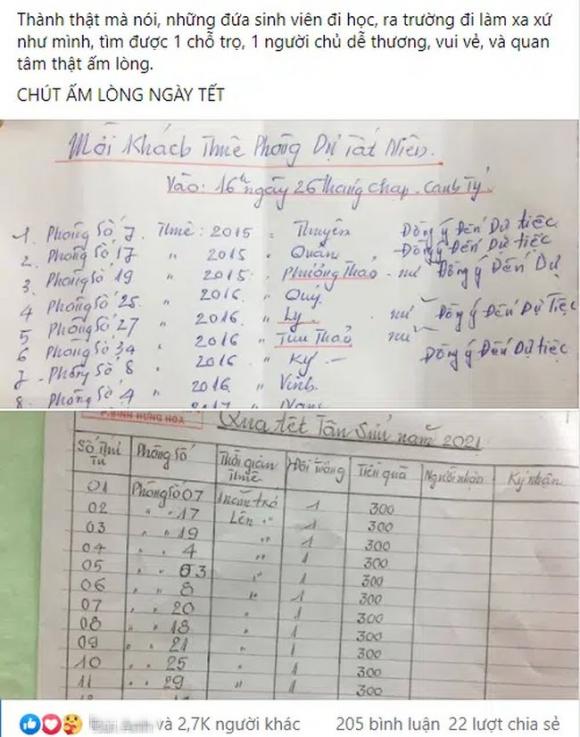 Thành thật mà nói, những đứa sinh viên đi học, ra trường đi làm xa xứ
như mình, tìm được 1 chỗ trọ, 1 người chủ dễ thương, vui vẻ, và quan
tâm thật ấm lòng.
CHÚT ẤM LÒNG NGÀY TẾT
Mời Khách Thuê Phòng Dự Tất Niên.
Vào: 16h ngày 26 Tháng Chạp. Canh Tý.
1. Phòng Số 7. Thuê: 2015 - Thuyên Đồng ý Đến Dự tiệc
2. Phòng Số 17 " 2015 " Quân Đồng ý Đến Dự tiệc
3. Phòng Số 19 " 2015 " Phương Thảo - nữ Đồng ý Đến Dự
4 Phòng Số 25 " 2016 " Quý
5 Phòng Số 27 " 2016 " Ly nữ Đồng ý Đến Dự Tiệc
6 Phòng Số 34 " 2016 " Thảo nữ
7 - Phòng Số 8 " 2016 " Ký - Đồng ý Đến Dự tiệc
8. Phòng Số 4 " 2016 " Vinh
P.BÌNH HƯNG HÒA
Quà tết Tân Sửu năm 2021
Số Thứ Tự Phòng Số Thời gian Thuê Tiền quà Người nhận Ký nhận
01 Phòng Số 07 1 300
02 " " 17 Lên " 1 300
03 " " 19 " 1 300
04 " " 4 " 1 300
05 " " 03 " 1 300
06 " " 8 " 1 300
07 " " 20 " 1 300
08 " " 18 " 1 300
09 " " 21 " 1 300
10 " " 25 " 1 300
11 " " 29 " 1 300
và 2,7K người khác 205 bình luận 22 lượt chia sẻ